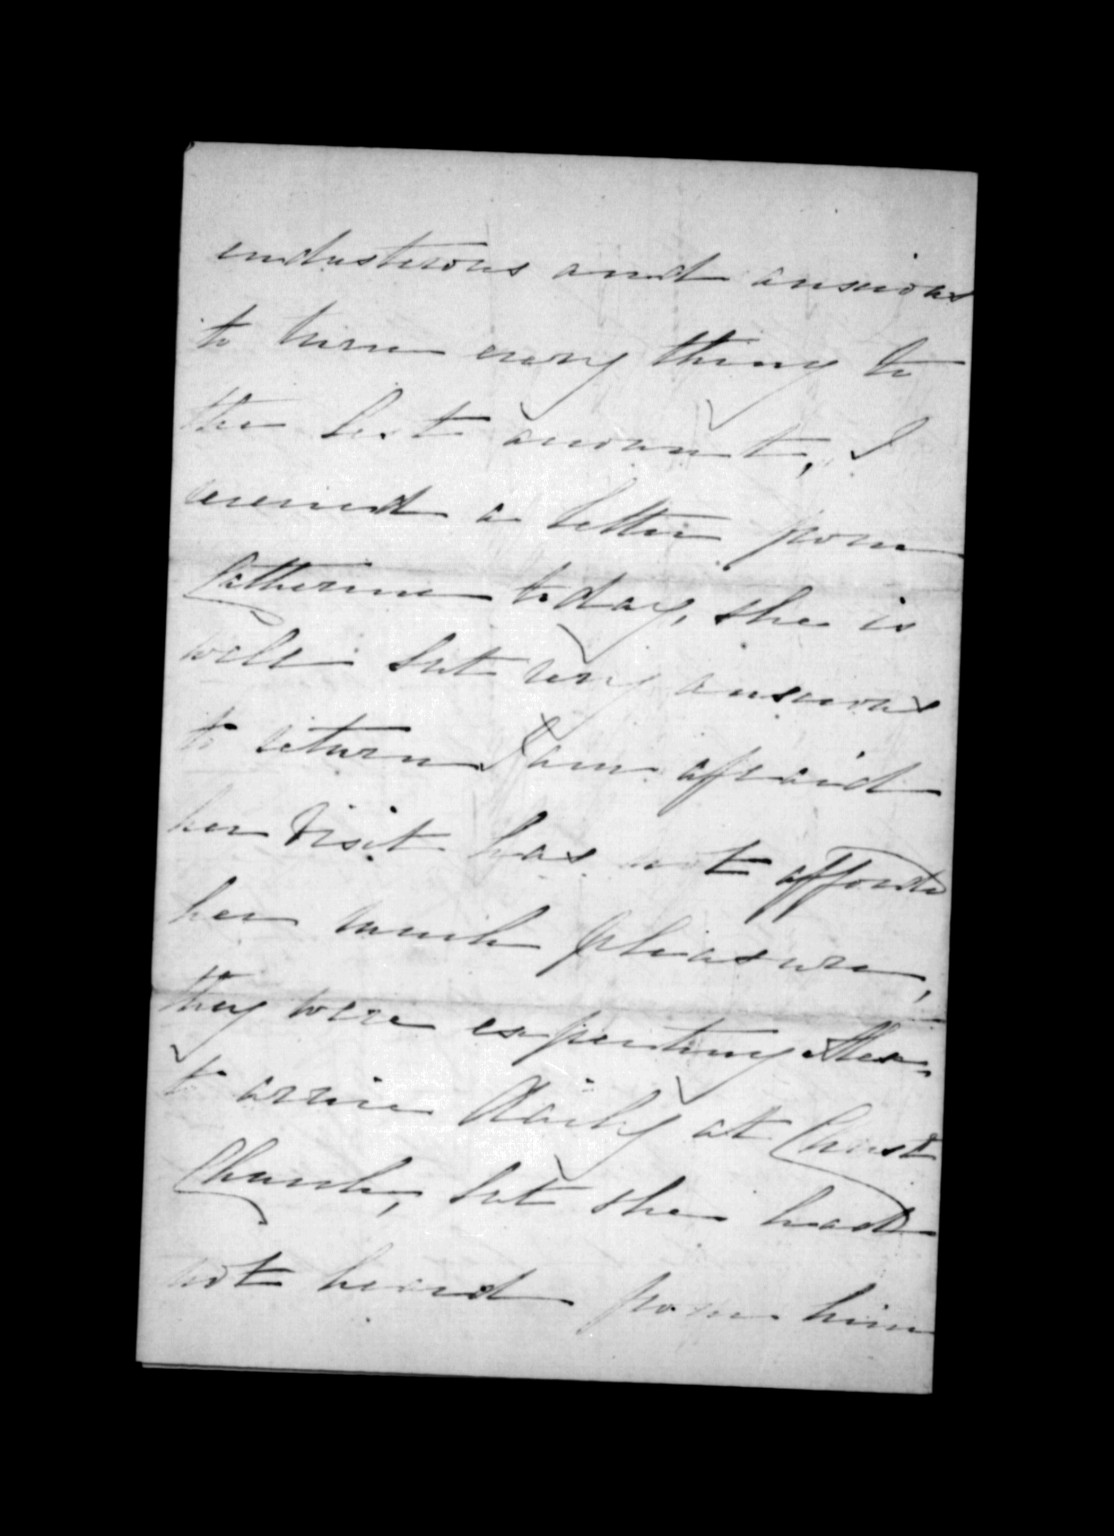 industerous and anxious
to turn every thing to
the best account, I
received a letter from
Catherine today, she is
well but very anxious
to return I am afraid
her visit has not afforded
her much pleasure,
they were expecting Alex.
to arrive daily at Christ
Church, but she had
not heard from him